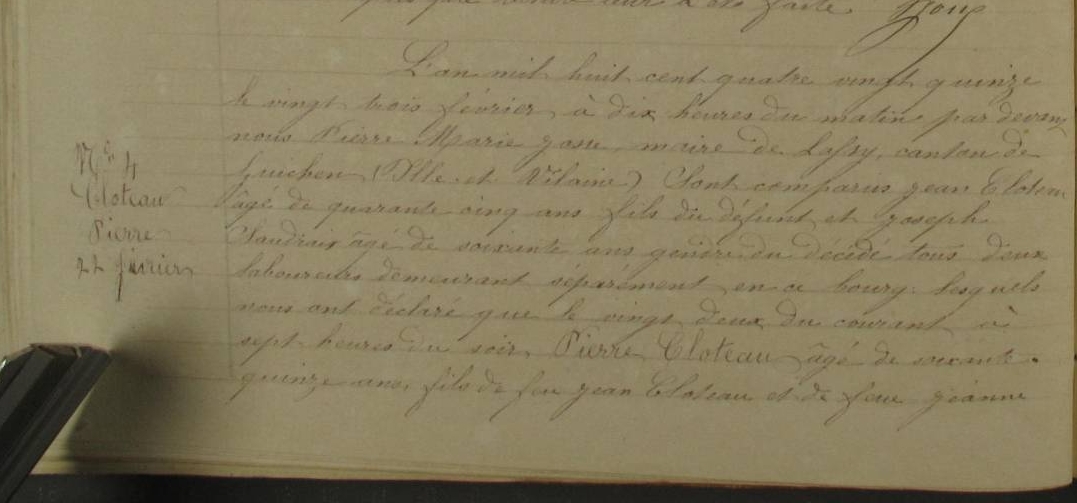 leur a été faite
L'an mil huit cent quatre vingt quinze
le vingt trois février, à dix heures du matin, par devant
nous Pierre Marie Josse, maire de Lassy, canton de
Guichen (Ille-et-Vilaine) Sont comparus Jean Cloteau
âgé de quarante cinq ans fils du défunt et Joseph
âgé de soixante ans gendre du décédé tous deux
laboureurs demeurant séparément en ce bourg. lesquels
nous ont déclaré que le vingt deux du courant à
sept heures du soir, Pierre Cloteau âgé de soixante-
quinze ans, fils de feu Jean Cloteau et de feue Jeanne
N° 4
Cloteau
Pierre
22 février